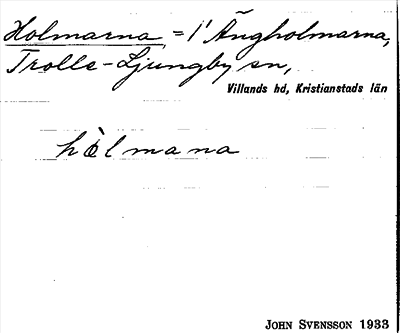 Holmarna, = l' Ängholmarna,
Trolle-Ljungby sn,
Villands hd, Kristianstads län
hòlmana
JOHN SVENSSON 1933